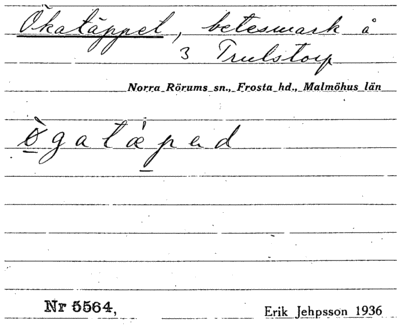 Ökatäppet, betesmark å
3 Trulstorp
Norra Rörums sn., Frosta hd., Malmöhus län
ò̱gatǽ̱pəd
Nr 5564,
Erik Jehpsson 1936